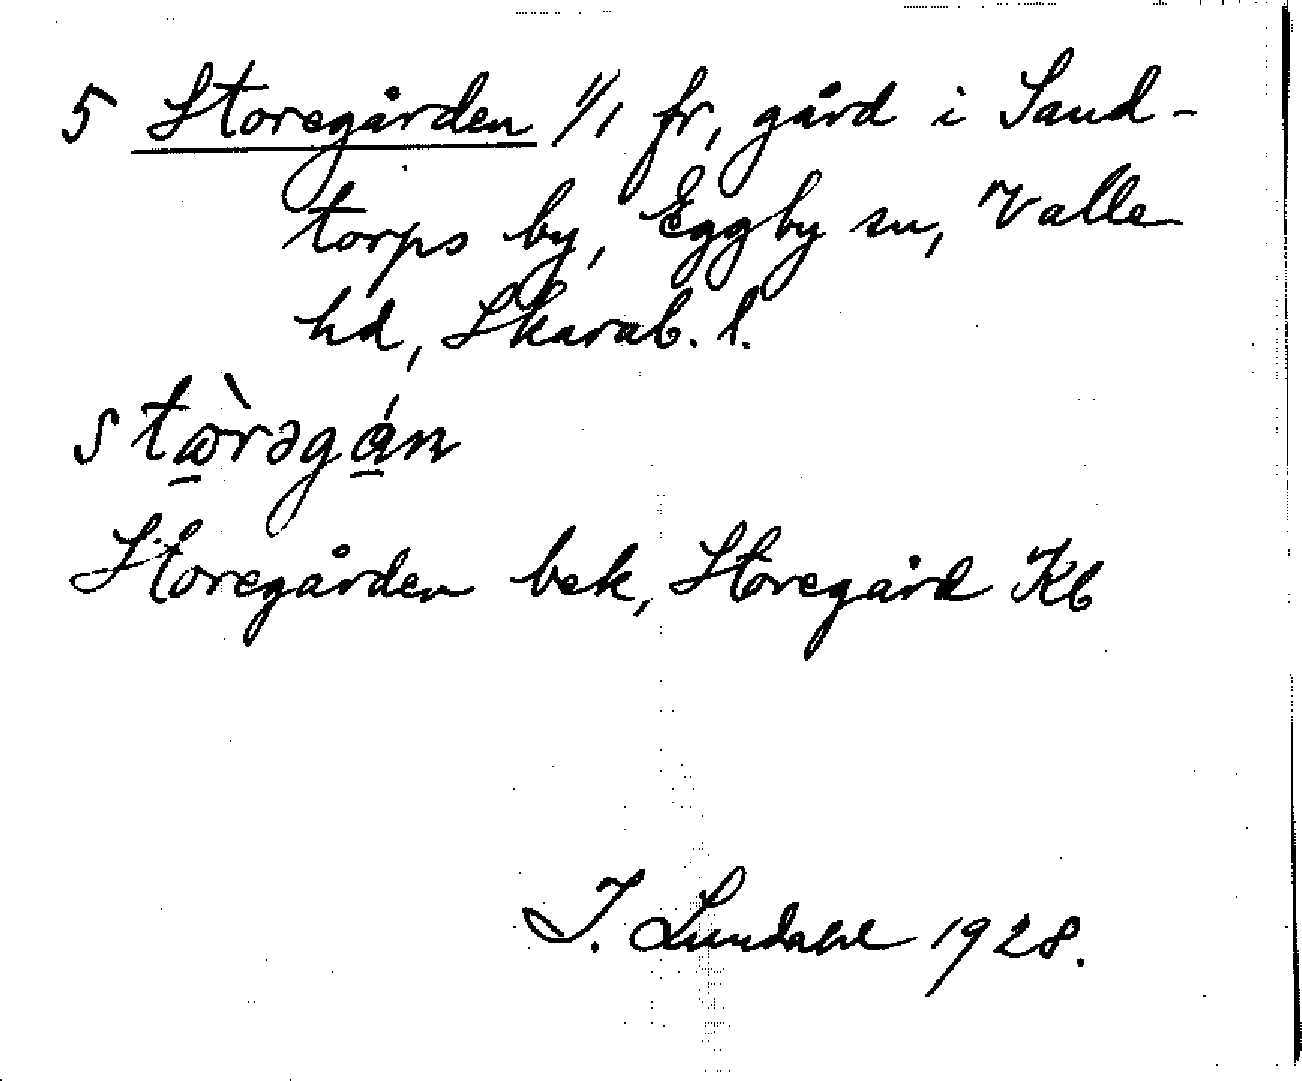 5 Storegården 1/1 fr, gård i Sand-
torps by, Eggby sn, Valle
hd, Skarab. l.
stὼrəgán
Storegården bek, Storegård Kb
I. Lundahl 1928.